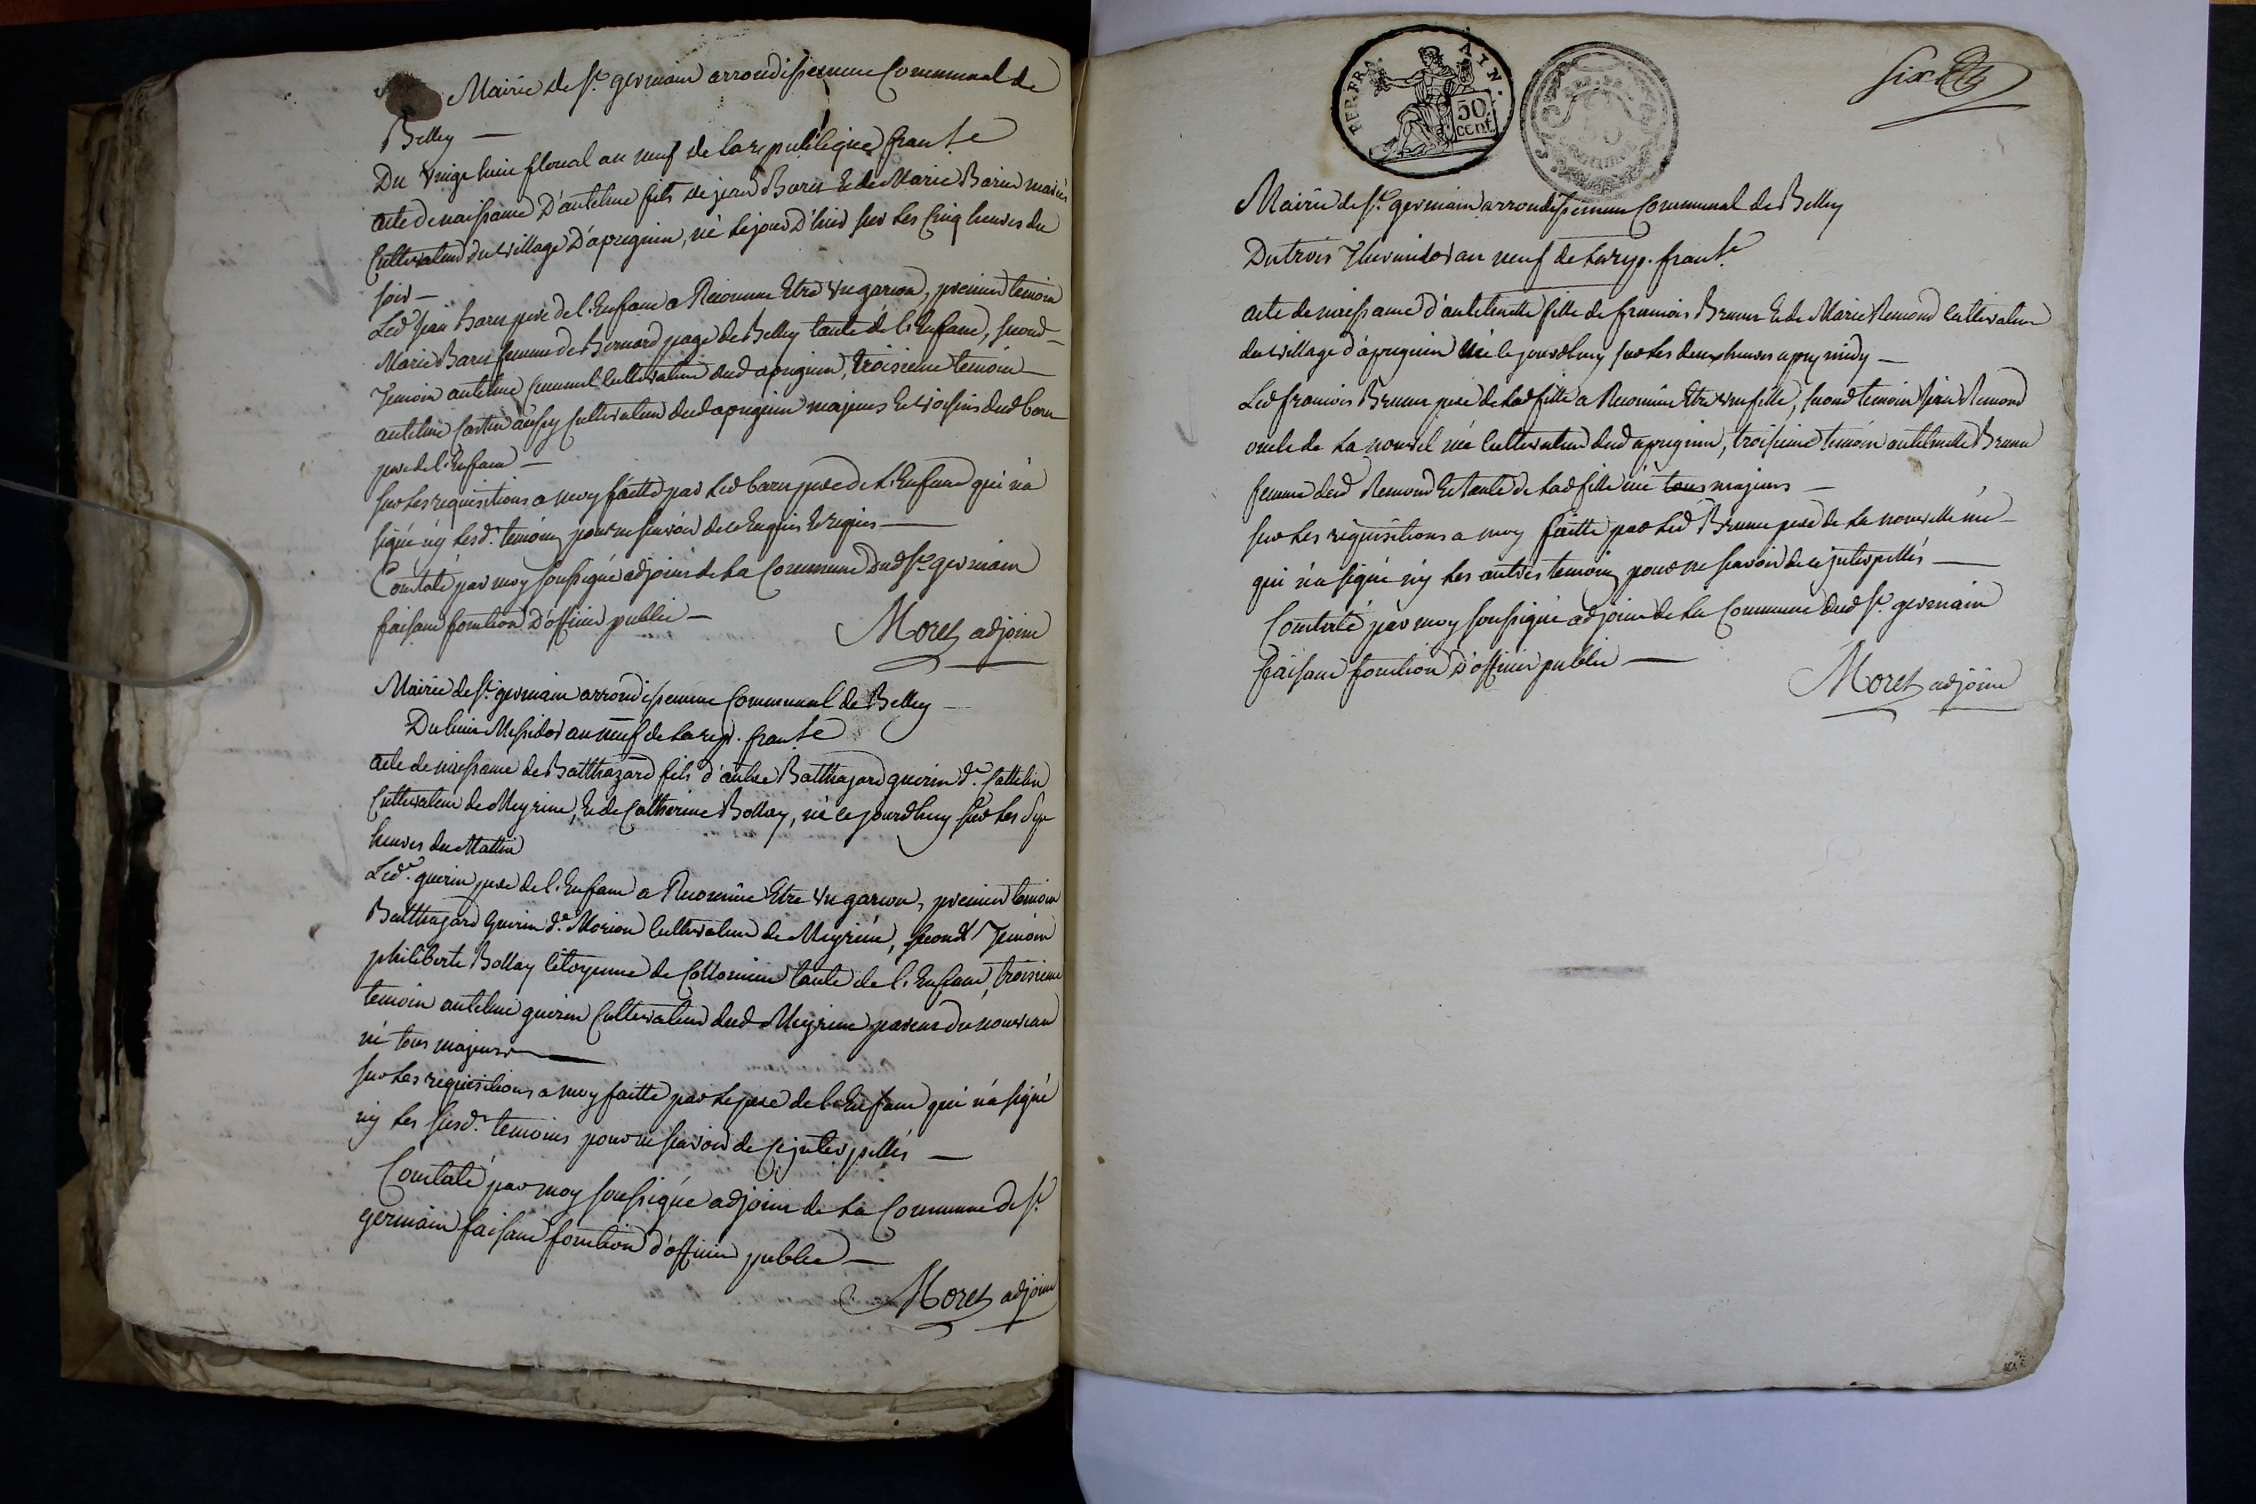 Mairie de St. germain arrondissement Communal de
Belley —
Du vingt huit floreal an neuf de la republique franse
acte de naissance D'antelme fils de jean Baru & de Marie Barin mariés
Cultivateur du village D'apregnin, né le jour D'hier sur les Cinq heures du
soir —
Led. Jean Baru pere de l'Enfant a Reconnu Etre un garcon, premier temoin
Marie Baru femme de Bernard page de Belley tante de l'Enfant, second
Temoin antelme cultivateur dud apregnin, troisieme temoin
antelme aussy Cultivateur dud apregnin majeurs et voisins dud baru
pere de l'Enfant —
sur les requisitions a moy faitte par led baru pere de l'Enfant qui n'a
signé ny lesd. temoins pour ne scavoir de ce Enquis & requis —
Constaté par moy soussigné adjoint de la Commune Dud St. germain
faisant fonction D'officier public —
Moret adjoint
Mairie de St. germain arrondissement Communal de Belley —
Du huit Messidor an neuf de la rep. franse
acte de naissance de Balthazard fils d'autre Balthazard guerin dt. Cattelin
Cultivateur de Meyrieu, & de Catherine Bollay, né ce jourdhuy sur les Sept
heures du Mattin
Led. guerin pere de l'Enfant a Reconnu Etre un garcon, premier temoin
Balthazard Guerin dt. Morion Cultivateur de Meyrieu, second Temoin
philiberte Bollay Citoyenne de tante de l'Enfant, troisieme
temoin antelme guerin Cultivateur dud Meyrieu parent du nouveau
né tous majeurs —
sur les requisitions a moy faitte par le pere de l'Enfant qui n'a signé
ny les susd. temoins pour ne scavoir de ce jnterpellés —
Constaté par moy soussigné adjoint de la Commune de St.
germain faisant fonction d'officier public —
Moret adjoint
six
FRA
AIN.
50
cent.
Mairie de St. germain arrondissement Communal de Belley
Du trois Thermidor an neuf de la rep. franse
acte de naissance d'antelmette fille de francois Brunn & de Marie Remond Cultivateur
du village d'apregnin née le jourdhuy sur les deux heures apres midy —
Led francois Brunn pere de lad fille a Reconnu Etre une fille, second temoin Jean Remond
oncle de la nouvel née Cultivateur dud apregnin, troisieme temoin antelmette Brunn
femme dud Remond Et tante de lad fille née tous majeurs —
sur les requisitions a moy faitte par led Brunn pere de la nouvelle née
qui n'a signé ny les autres temoins pour ne scavoir de ce jnterpellés —
Constaté par moy soussigné adjoint de la Commune dud St. germain
faisant fonction d'officier public —
Moret adjoint